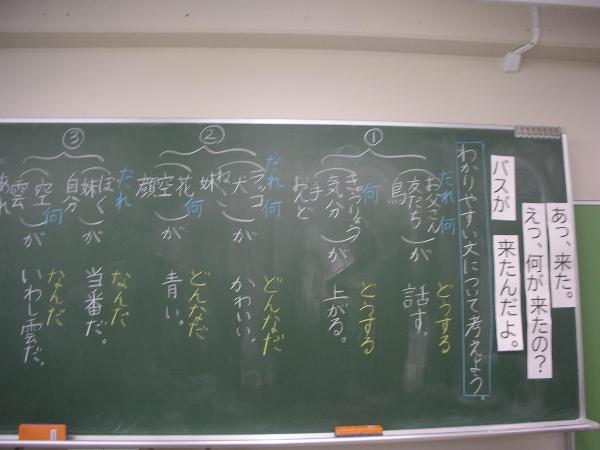 あっ、来た。
えっ、何が来たの?
バスが 来たんだよ。
わかりやすい文について考えよう。
①
だれ 何 どうする
お父さん
友だち が 話す。
鳥
何 どうする
きゅうしょく
気分 が 上がる。
手
おんど
②
だれ 何 どんなだ
ラッコ
犬 が かわいい。
ねこ
妹
何 どんなだ
花
空 が 青い。
顔
③
だれ なんだ
ぼく
妹 が 当番だ。
自分
何 なんだ
空
雲 が いわし雲だ。
あれ